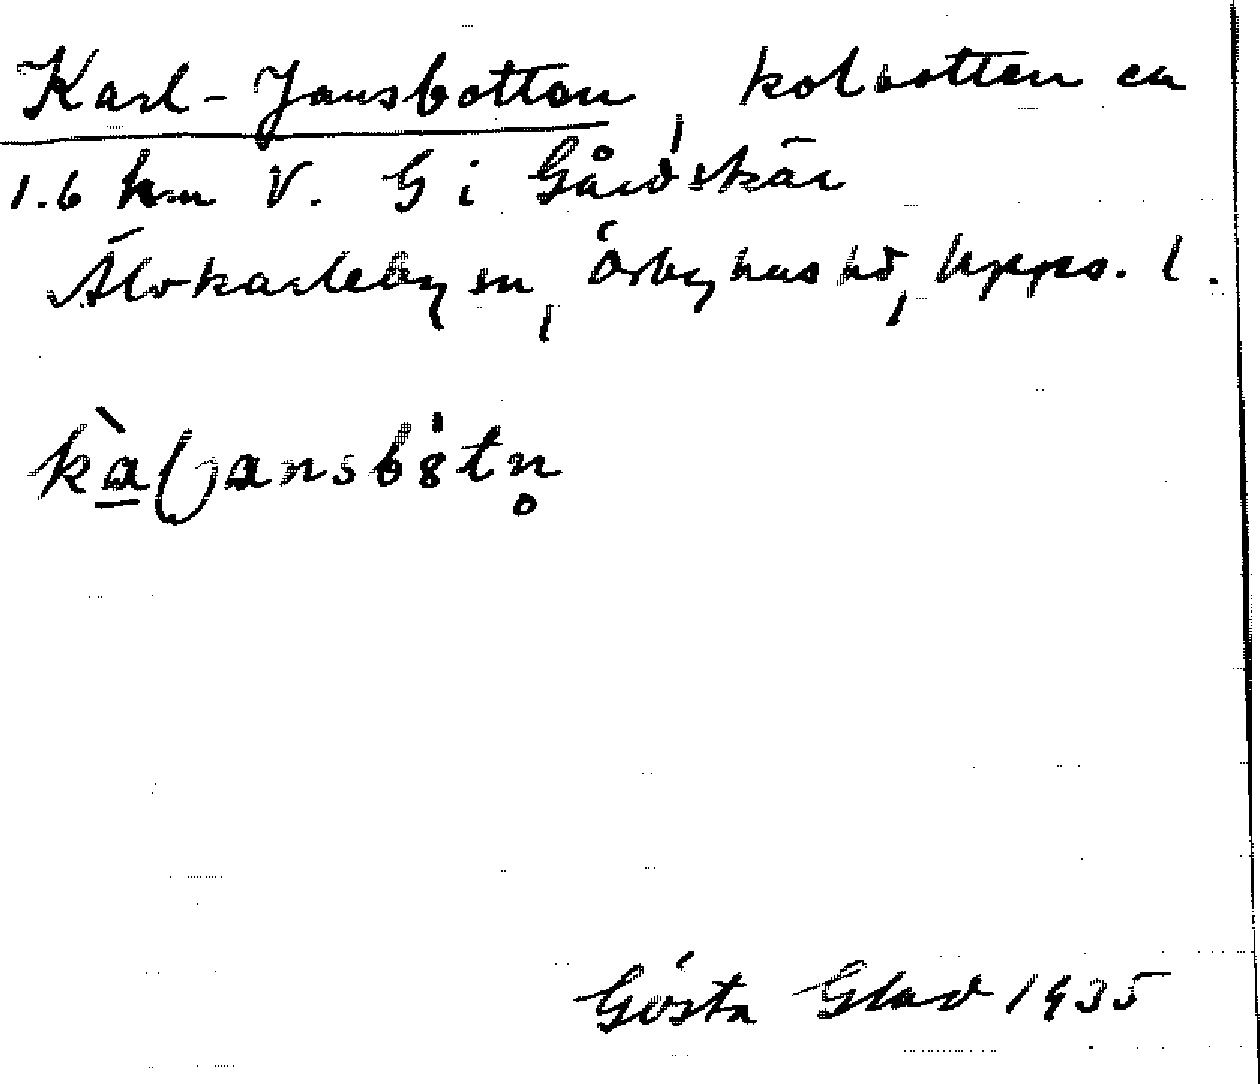 Karl-Jansbotten, kolbotten ca
1.6 km V. G i Gårdskär
Älvkarleby sn, Örbyhus hd, Upps. l.
Gösta Glad 1935